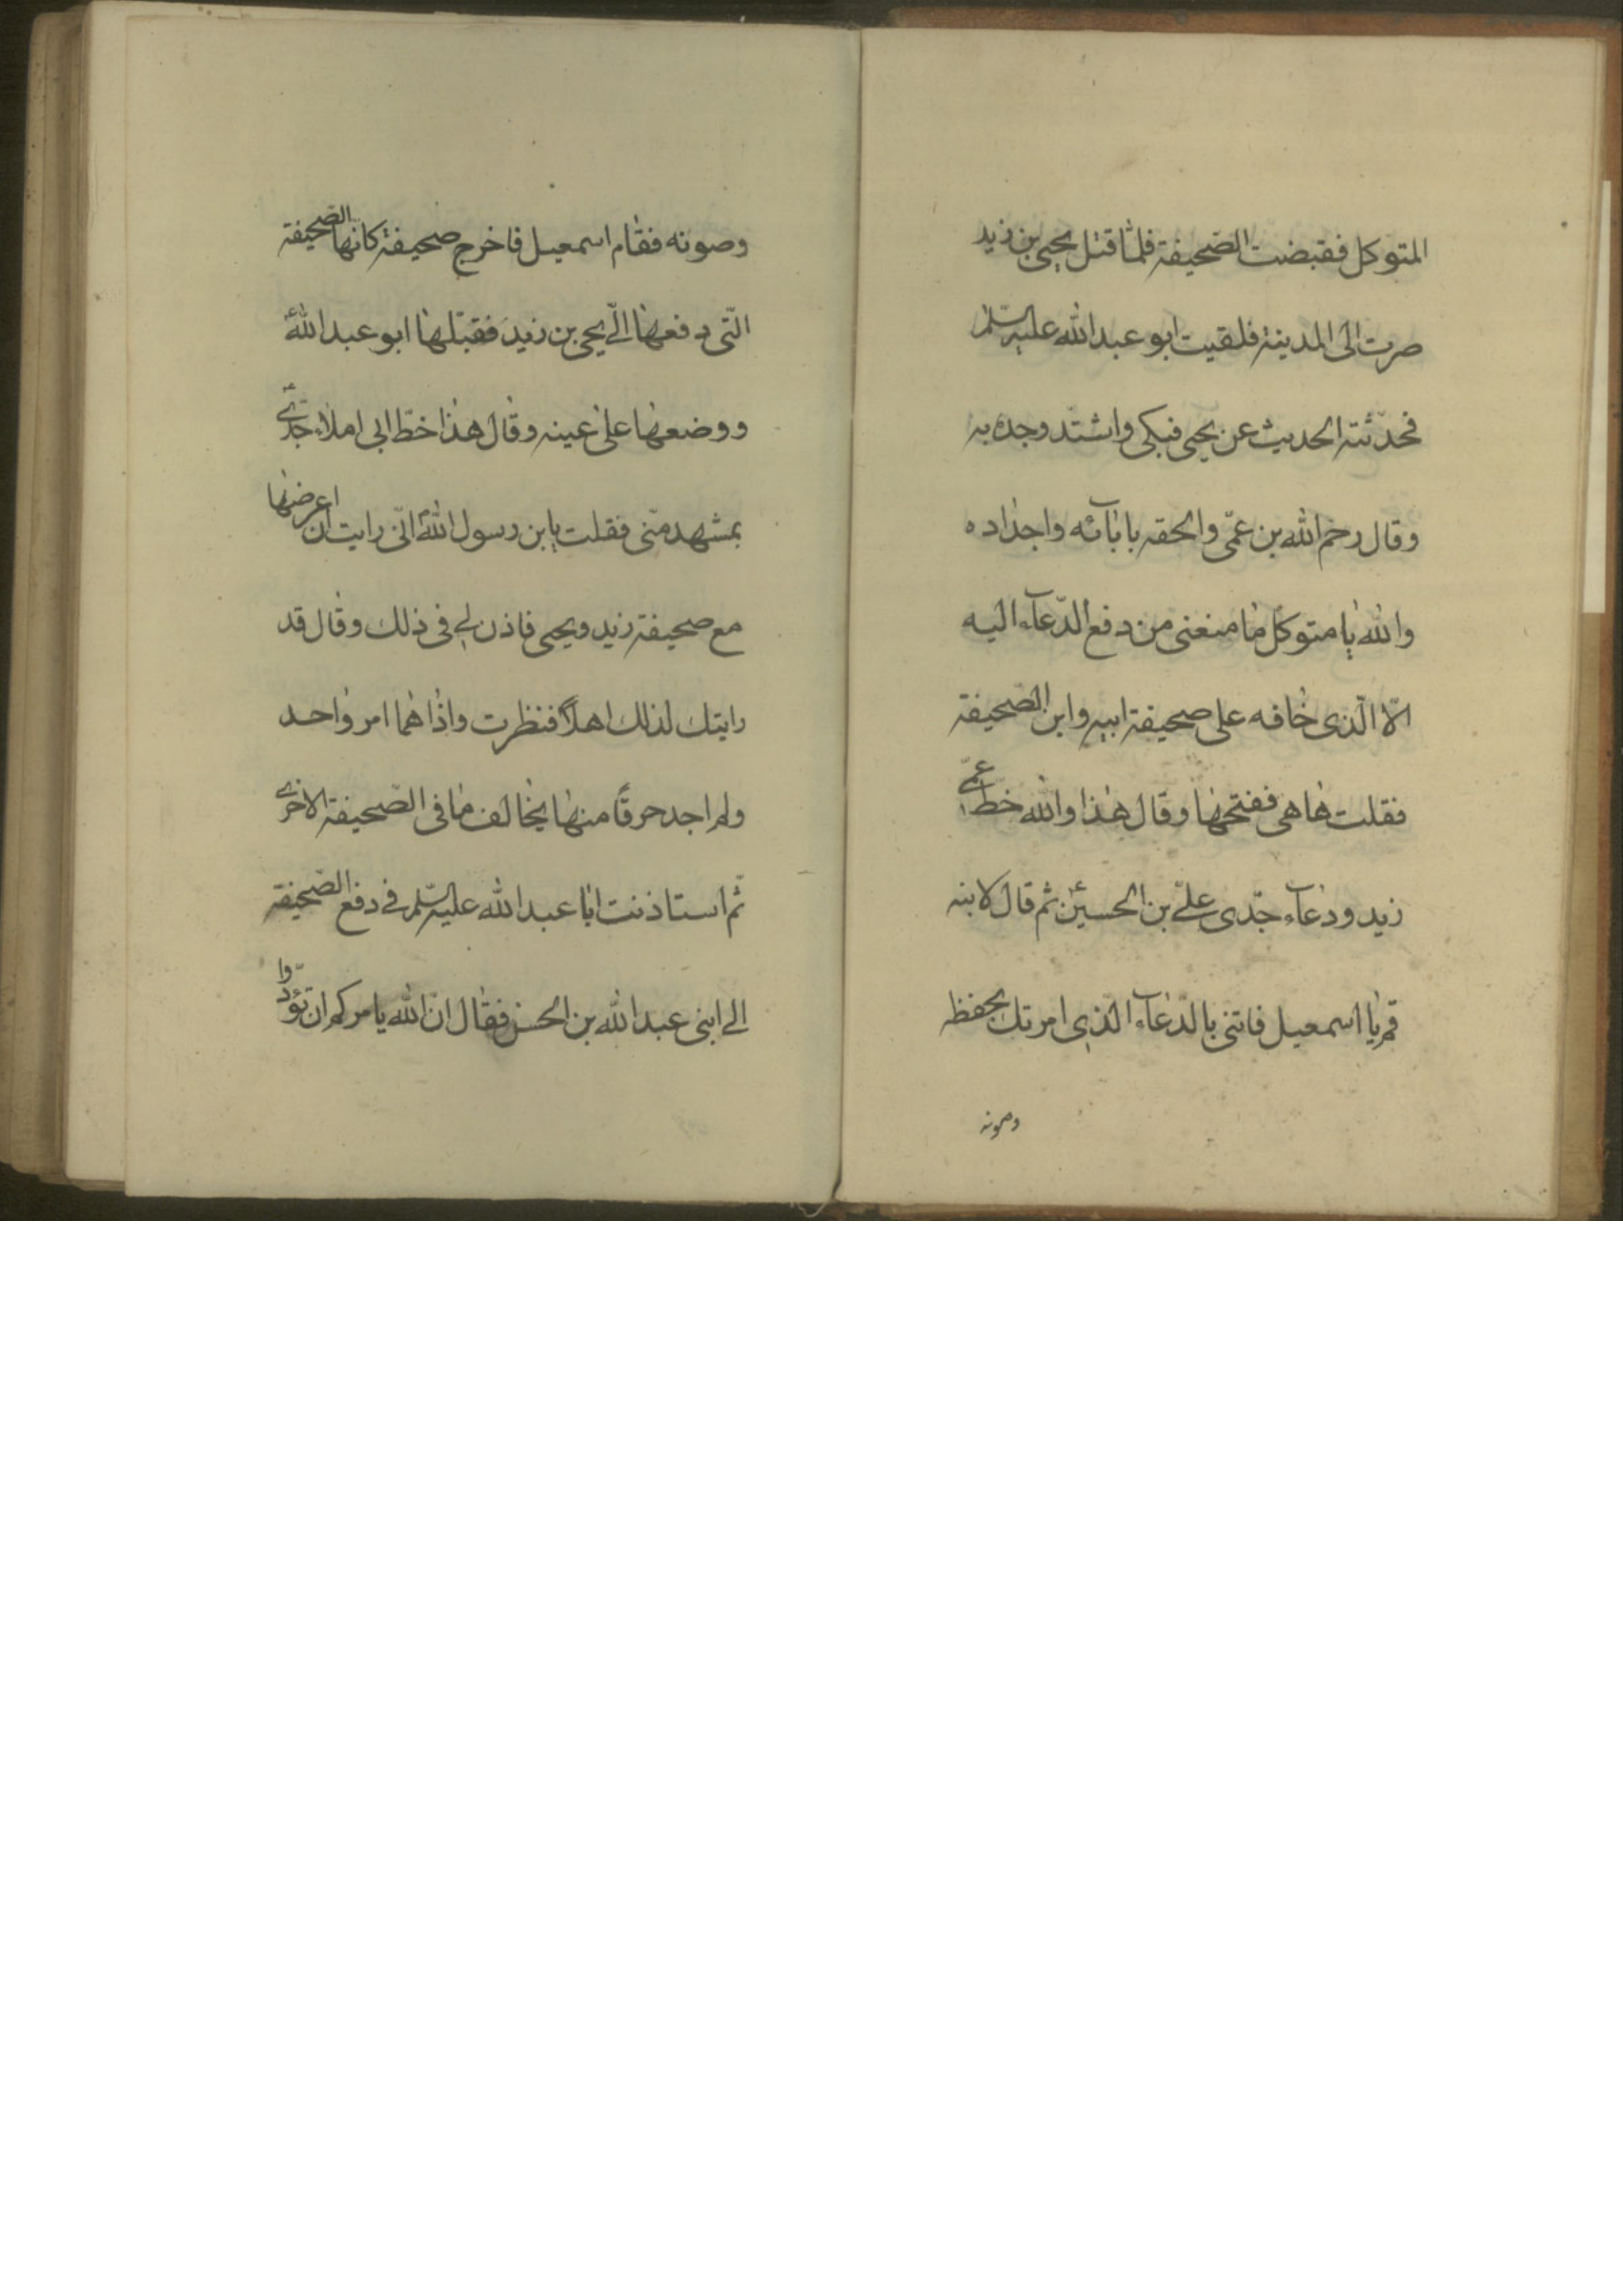 المتوكل فقبضت الصّحيفة فلمّا قتل يحيى بن زيد
صرت الى المدينة فلقيت ابو عبد الله عليه السّلم
فحدّثته الحديث عن يحيى فبكى واشتدّ وجده به
وقال رحم الله بن عمّى والحقه بابآئه واجداده
والله يا متوكل ما منعنى من دفع الدّعآء اليه
الّا الّذى خافه على صحيفة ابيه واين الصّحيفة
فقلت ها هى ففتحها وقال هذا والله خطّ عمّى
زيد ودعآء جدّى علىّ بن الحسينؑ ثم قال لابنه
قم يا اسمعيل فاتنى بالدّعآء الّذى امرتك بحفظه
وصونه
وصونه فقام اسمعيل فاخرج صحيفة كانّها الصّحيفة
الّتى دفعها الىّ يحيى بن زيد فقبّلها ابو عبد اللهؑ
ووضعها على عينه وقال هذا خطّ ابى املاء جدّىؑ
بمشهد منّى فقلت يابن رسول الله انّى رايت ان اعرضها
مع صحيفة زيد ويحيى فاذن لى فى ذلك وقال قد
رايتك لذلك اهلاً فنظرت واذا هما امر واحد
ولم اجد حرفًا منها يخالف ما فى الصّحيفة الاخرى
ثّم استاذنت ابا عبد الله عليه السّلم فى دفع الصّحيفة
الى ابنى عبد الله بن الحسن فقال انّ الله يامركم ان تؤدّوا